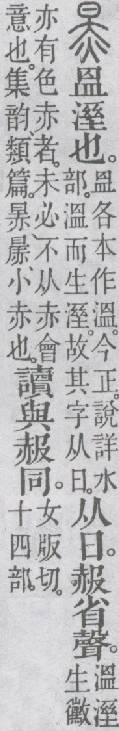 㬈𥁕溼也。𥁕各本作溫。今正。說詳水部。溫而生溼。故其字从日。从日。赧省聲。溫溼生黴
亦有色赤者。未必不从赤會意也。集韵類篇。㬈小赤也。讀與赧同。女版切。十四部。